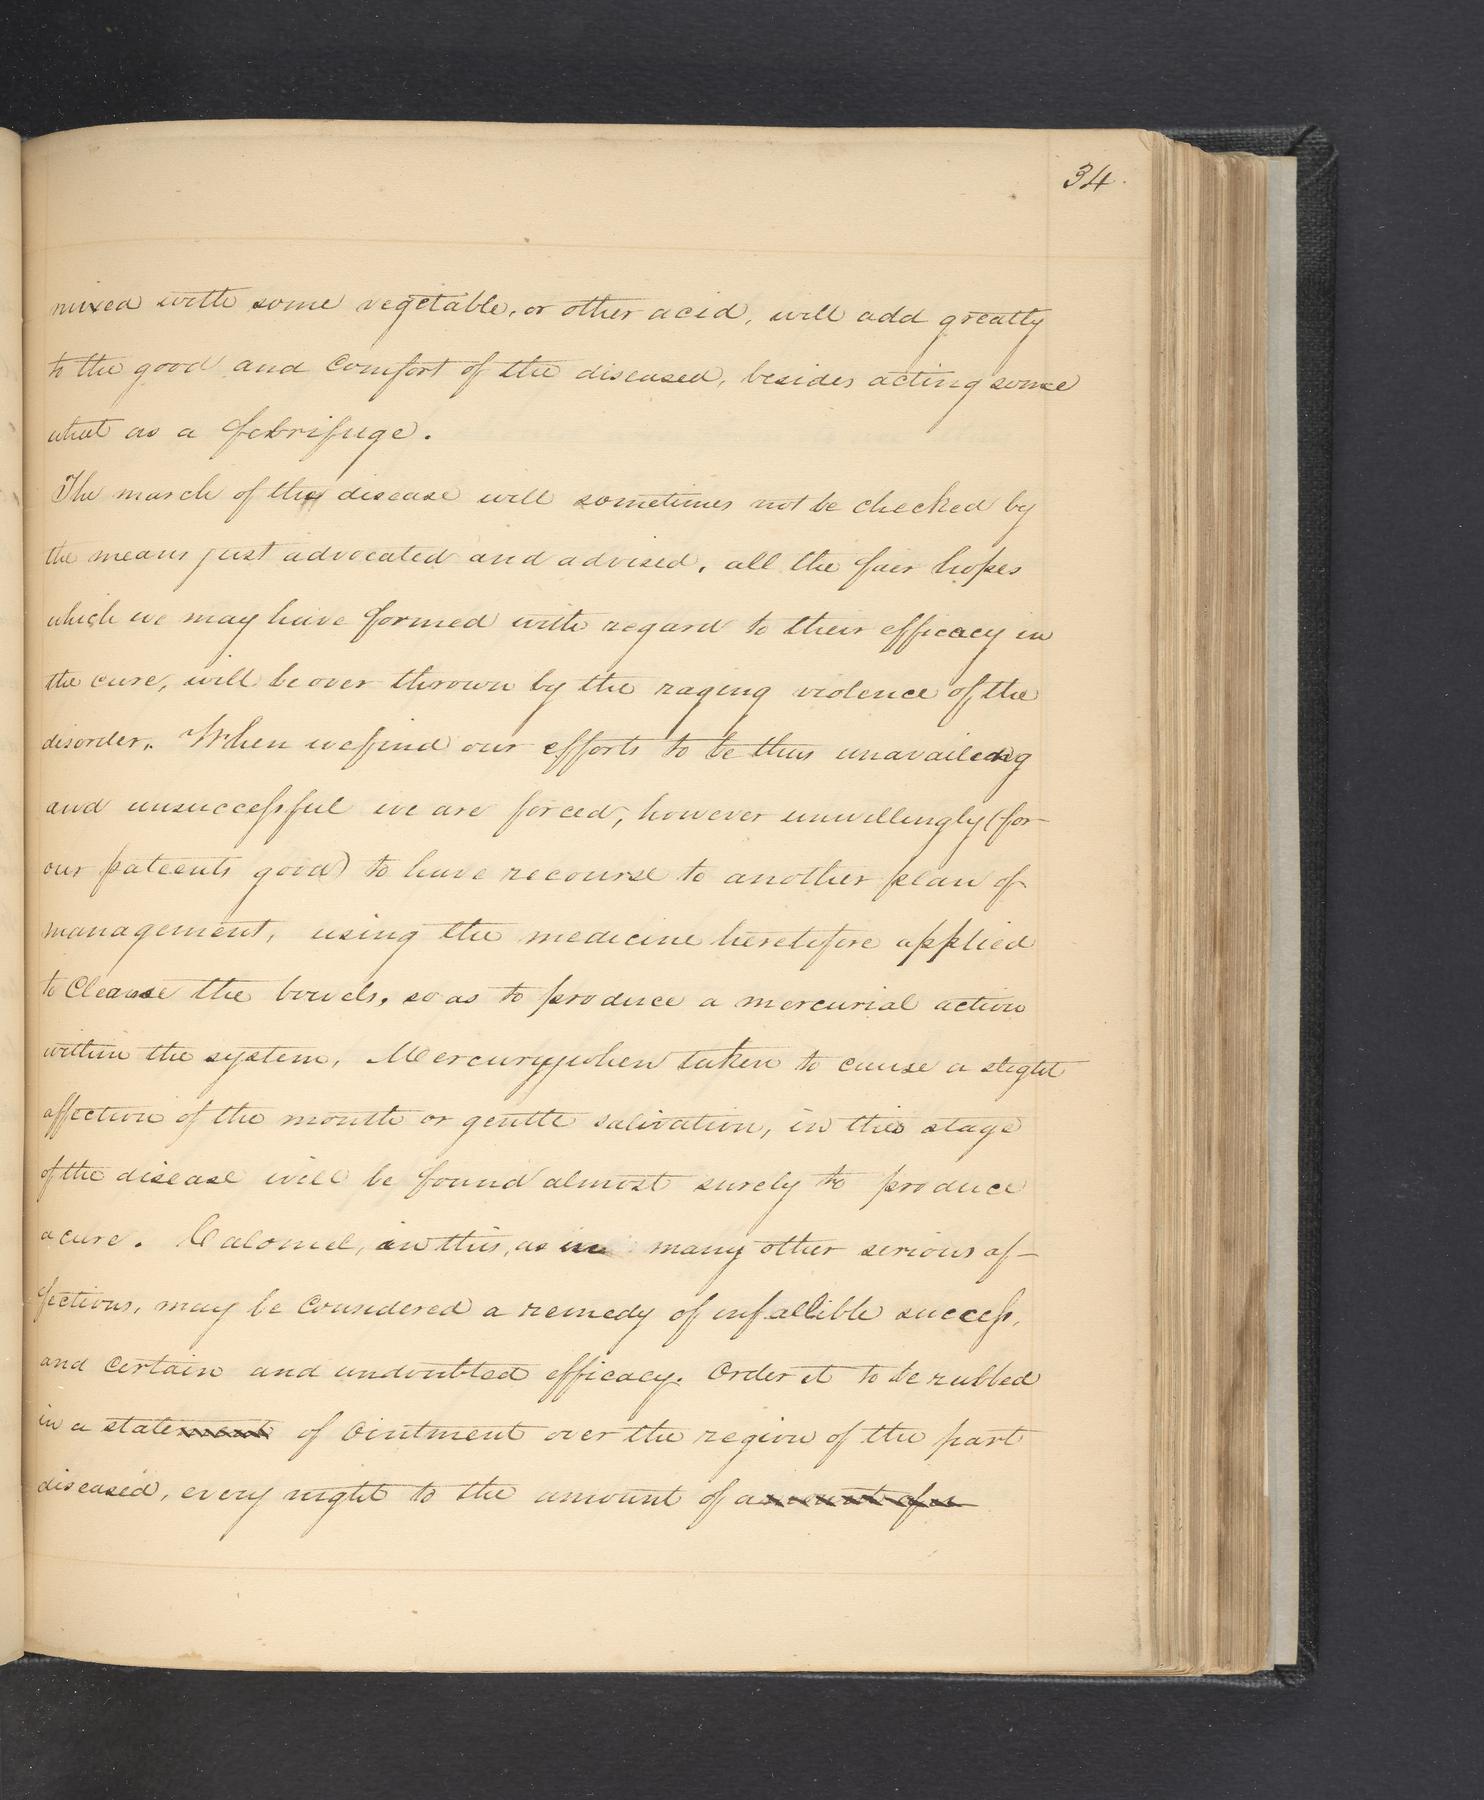 34.
mixed with some vegetable, or other acid, will add greatly
to the good and comfort of the diseased, besides acting some
what as a febrifuge.
The march of the disease will sometimes not be checked by
the means just advocated and advised, all the fair hopes
which we may have formed with regard to their efficacy in
the cure, will be over thrown by the raging violence of the
disorder. When we find our efforts to be thus unavailing
and unsuccessful we are forced, however unwillingly (for
our patients good) to have recourse to another plan of
management, using the medicine heretofore applied
to Cleanse the bowels, so as to produce a mercurial action
within the system. Mercury, when taken to cause a slight
affection of the mouth or gentle salivation, in this stage
of the disease will be found almost surely to produce
a cure. Calomel, in this, as in many other serious af-
fections, may be considered a remedy of infallible success,
and certain and undoubted efficacy. Order it to be rubbed
in a statement of Ointment over the region of the part
diseased, every night to the amount of amount of a